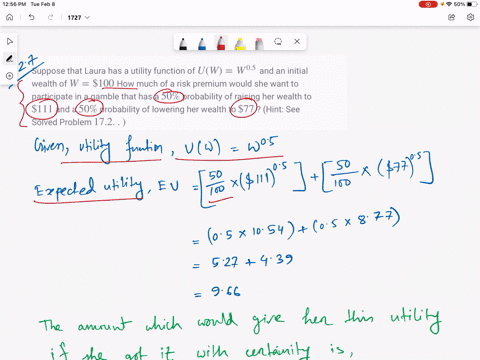 12:56 PM Tue Feb 8
50%
1727
2.7
Suppose that Laura has a utility function of U(W) = W^0.5 and an initial
wealth of W = $100 How much of a risk premium would she want to
participate in a gamble that has a 50% probability of raising her wealth to
$111 and a 50% probability of lowering her wealth to $77? (Hint: See
Solved Problem 17.2. . )
Given, utility function, U(W) = W^0.5
Expected utility, EU = [50/100 × ($111)^0.5] + [50/100 × ($77)^0.5]
= (0.5 × 10.54) + (0.5 × 8.77)
= 5.27 + 4.39
= 9.66
The amount which would give her this utility
if she got it with certainity is,